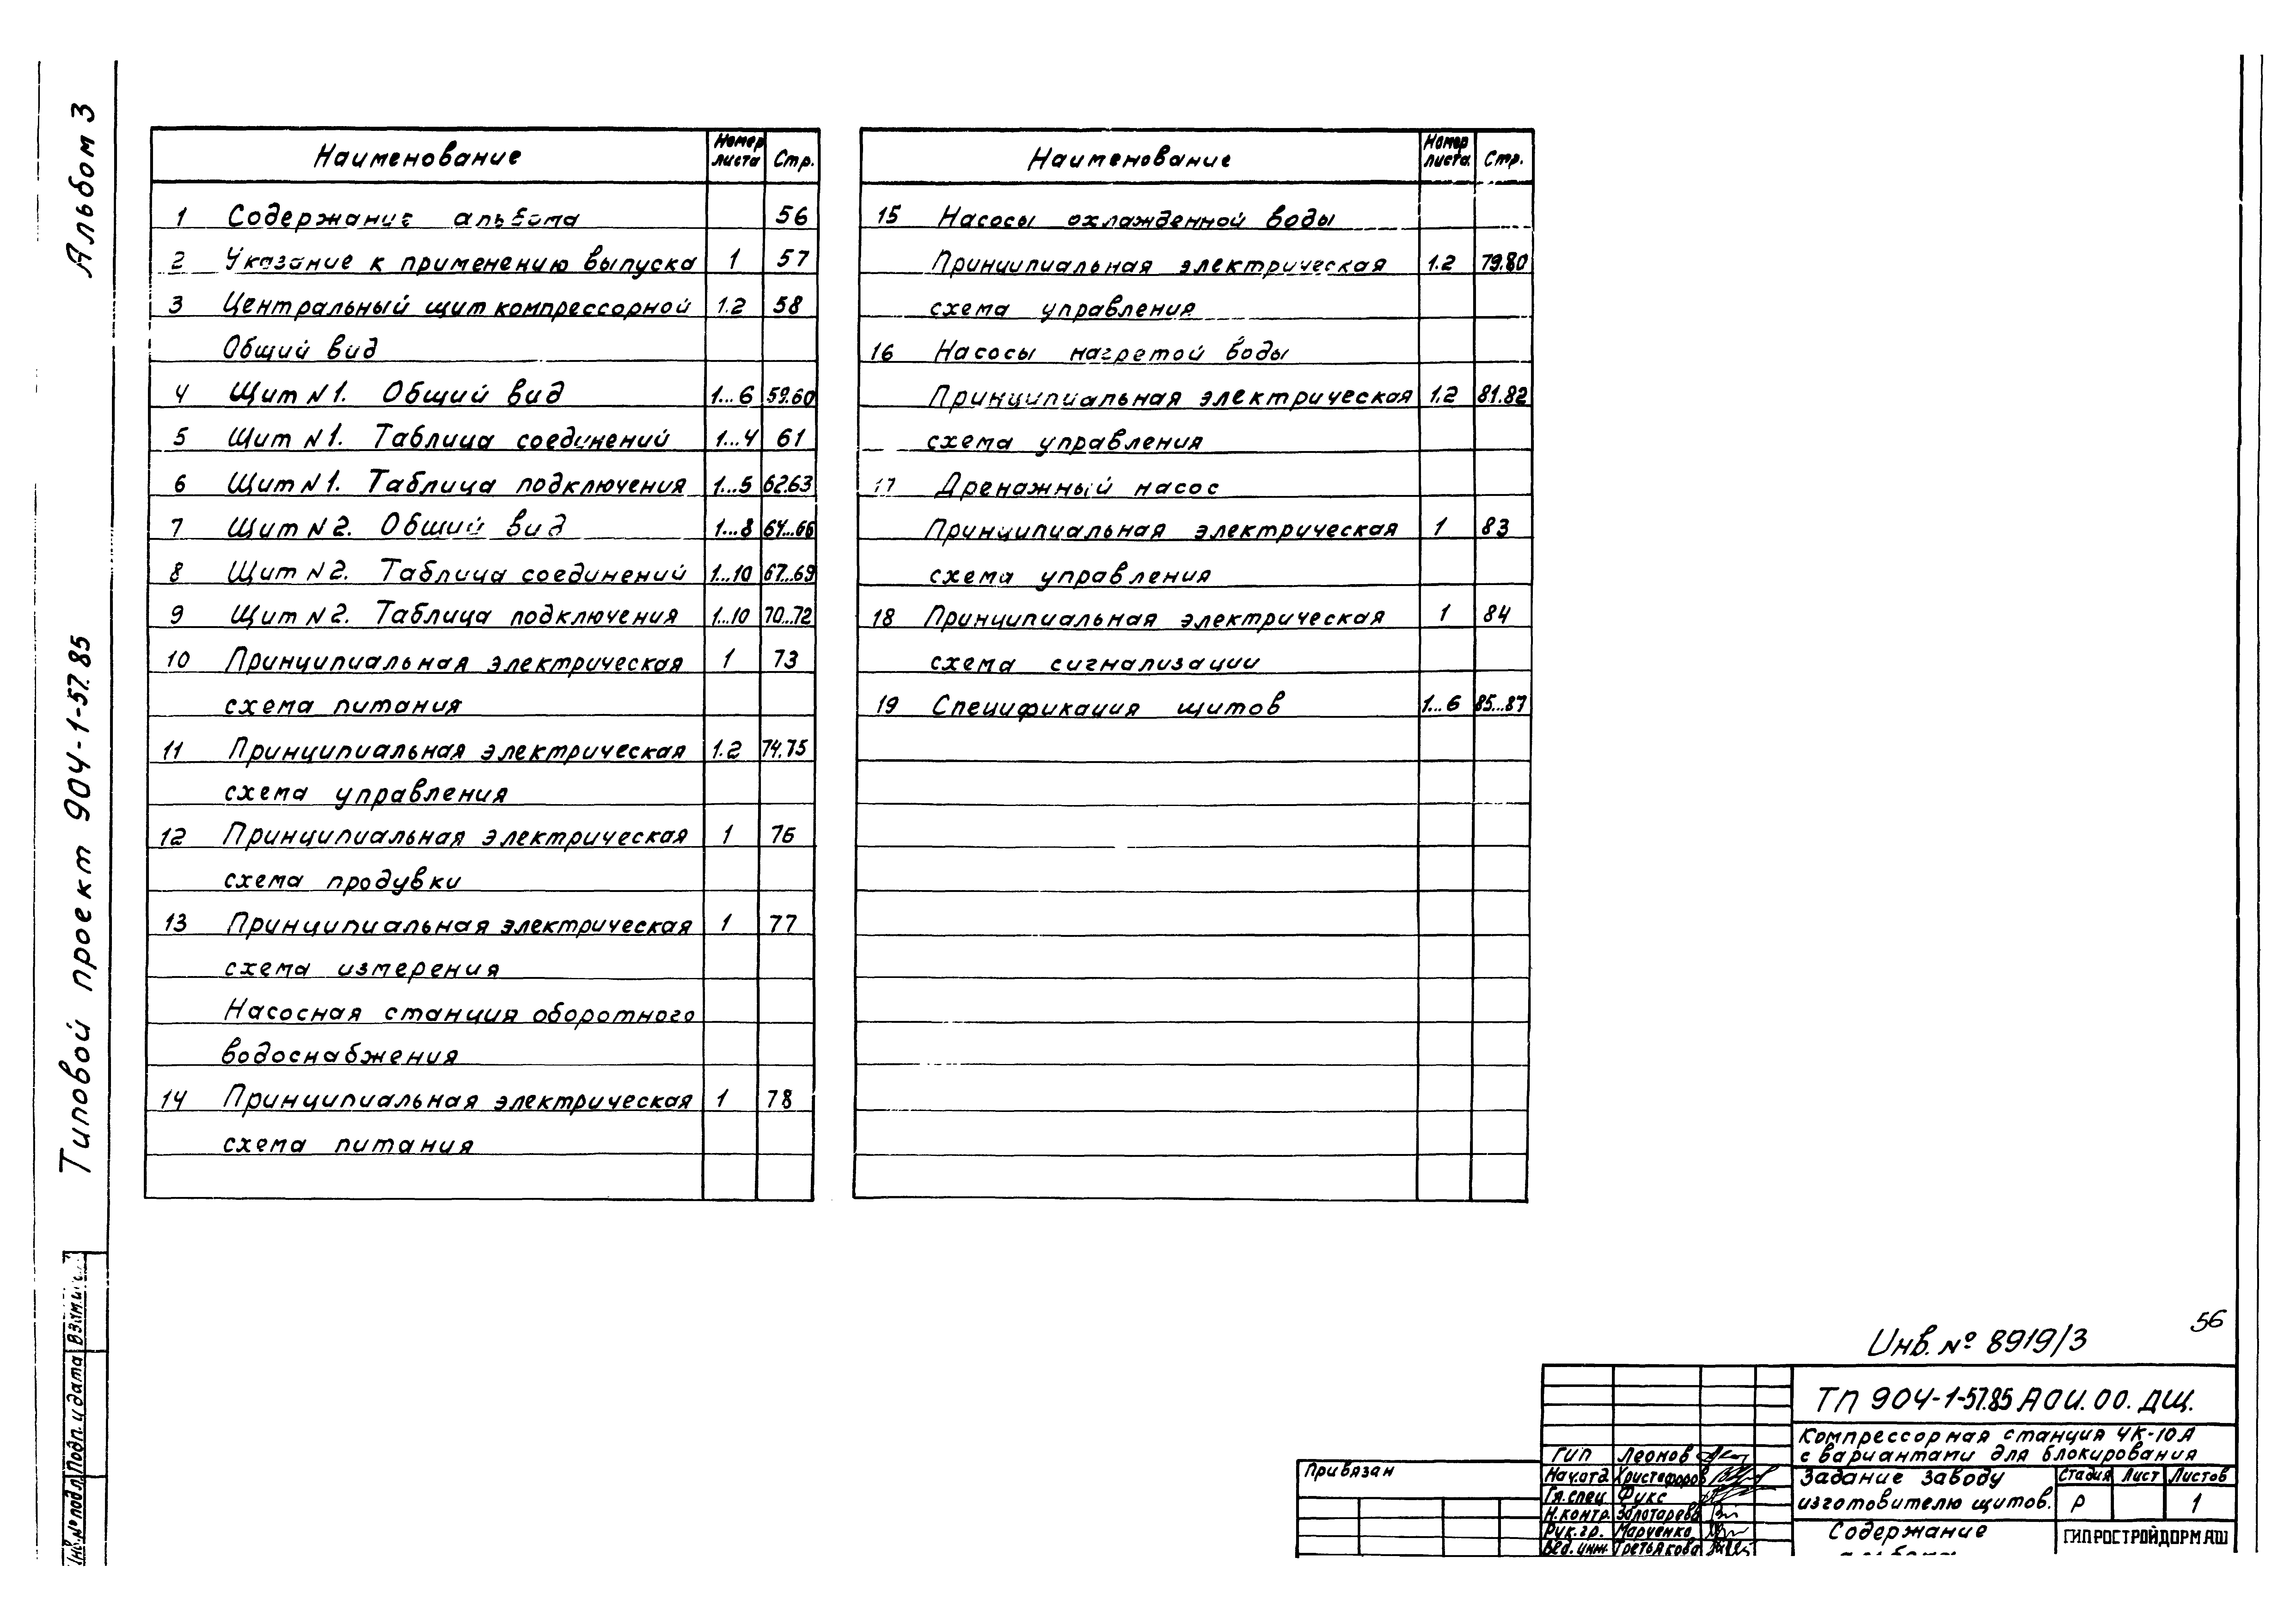 Альбом 3
Типовой проект 904-1-57.85
Наименование Номер листа Стр.
1 Содержание альбома 56
2 Указание к применению выпуска 1 57
3 Центральный щит компрессорной 1.2 58
Общий вид
4 Щит N1. Общий вид 1...6 59.60
5 Щит N1. Таблица соединений 1...4 61
6 Щит N1. Таблица подключения 1...5 62.63
7 Щит N2. Общий вид 1...8 64...66
8 Щит N2. Таблица соединений 1...10 67...69
9 Щит N2. Таблица подключения 1...10 70...72
10 Принципиальная электрическая 1 73
схема питания
11 Принципиальная электрическая 1.2 74.75
схема управления
12 Принципиальная электрическая 1 76
схема продувки
13 Принципиальная электрическая 1 77
схема измерения
Насосная станция оборотного
водоснабжения
14 Принципиальная электрическая 1 78
схема питания
Наименование Номер листа Стр.
15 Насосы охлажденной воды
Принципиальная электрическая 1.2 79.80
схема управления
16 Насосы нагретой воды
Принципиальная электрическая 1.2 81.82
схема управления
17 Дренажный насос
Принципиальная электрическая 1 83
схема управления
18 Принципиальная электрическая 1 84
схема сигнализации
19 Спецификация щитов 1...6 85...87
Инв.№ подл. Подп. и дата Взам.
56
Инв. № 8919/3
ТП 904-1-57.85 АОИ.00.ДЩ.
Компрессорная станция 4К-10А
с вариантами для блокирования
Задание заводу
изготовителю щитов.
Стадия Лист Листов
Р 1
Содержание
альбома
ГИПРОСТРОЙДОРМАШ
Привязан
ГИП Леонов
Нач.отд. Христофоров
Гл.спец. Фукс
Н.контр. Золотарева
Рук.гр. Марченко
Вед.инж. Третьякова